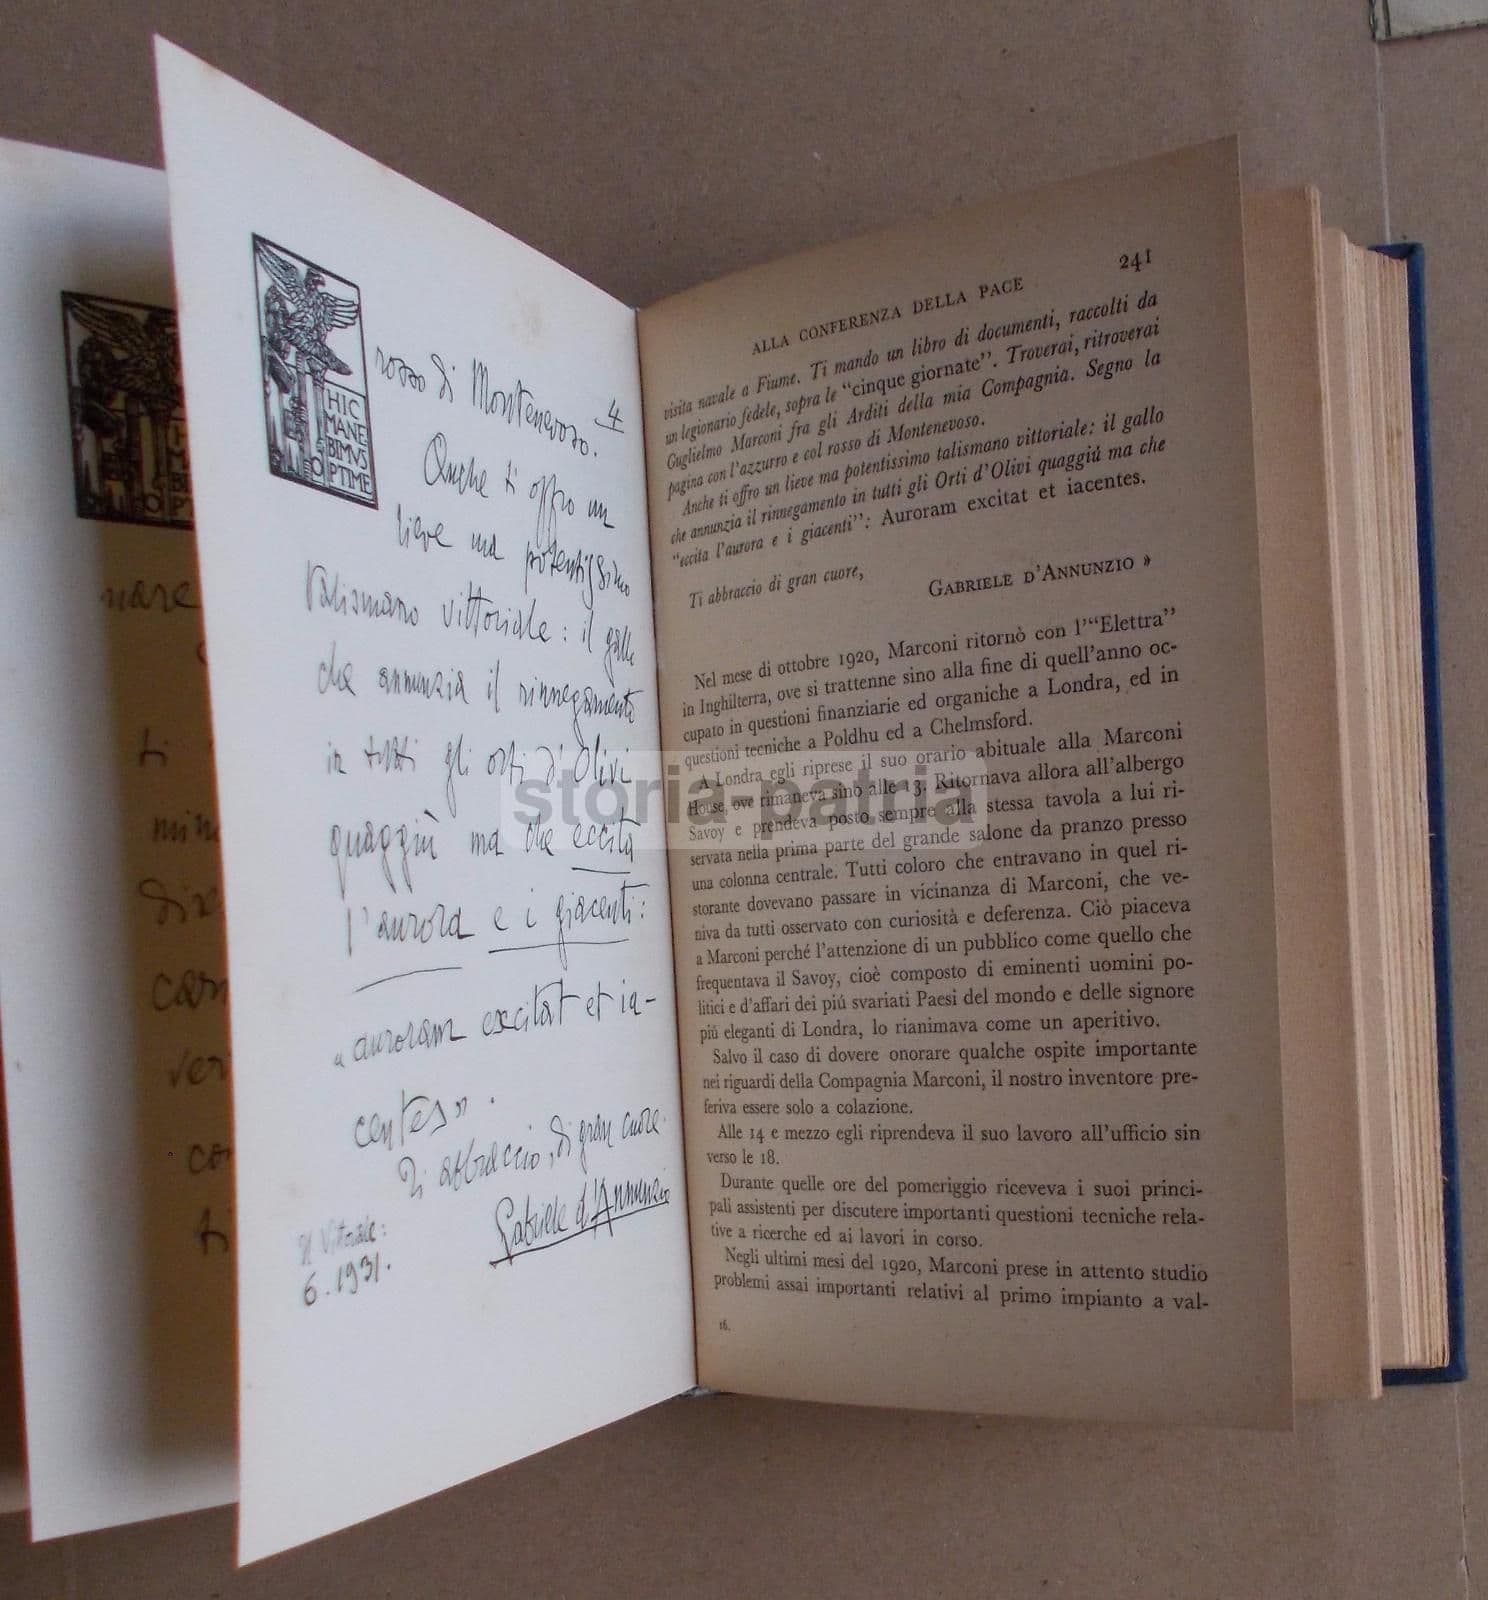 HIC
MANE
BIMVS
OPTIME
4
rosso di Montenevoso.
Anche ti offro un
lieve ma potentissimo
talismano vittoriale: il gallo
che annunzia il rinnegamento
in tutti gli orti di Olivi
quaggiù ma che eccita
l'aurora e i giacenti:
« auroram excitat et ia-
centes».
Ti abbraccio, di gran cuore.
Gabriele d'Annunzio
Il Vittoriale:
6.1931.
nare
ti
car
ver
co
ti
ALLA CONFERENZA DELLA PACE 241
visita navale a Fiume. Ti mando un libro di documenti, raccolti da
un legionario fedele, sopra le "cinque giornate". Troverai, ritroverai
Guglielmo Marconi fra gli Arditi della mia Compagnia. Segno la
pagina con l'azzurro e col rosso di Montenevoso.
Anche ti offro un lieve ma potentissimo talismano vittoriale: il gallo
che annunzia il rinnegamento in tutti gli Orti d'Olivi quaggiú ma che
"eccita l'aurora e i giacenti": Auroram excitat et iacentes.
Ti abbraccio di gran cuore,
GABRIELE D'ANNUNZIO »
Nel mese di ottobre 1920, Marconi ritornò con l'"Elettra"
in Inghilterra, ove si trattenne sino alla fine di quell'anno oc-
cupato in questioni finanziarie ed organiche a Londra, ed in
questioni tecniche a Poldhu ed a Chelmsford.
A Londra egli riprese il suo orario abituale alla Marconi
House, ove rimaneva sino alle 13. Ritornava allora all'albergo
Savoy e prendeva posto sempre alla stessa tavola a lui ri-
servata nella prima parte del grande salone da pranzo presso
una colonna centrale. Tutti coloro che entravano in quel ri-
storante dovevano passare in vicinanza di Marconi, che ve-
niva da tutti osservato con curiosità e deferenza. Ciò piaceva
a Marconi perché l'attenzione di un pubblico come quello che
frequentava il Savoy, cioè composto di eminenti uomini po-
litici e d'affari dei piú svariati Paesi del mondo e delle signore
piú eleganti di Londra, lo rianimava come un aperitivo.
Salvo il caso di dovere onorare qualche ospite importante
nei riguardi della Compagnia Marconi, il nostro inventore pre-
feriva essere solo a colazione.
Alle 14 e mezzo egli riprendeva il suo lavoro all'ufficio sin
verso le 18.
Durante quelle ore del pomeriggio riceveva i suoi princi-
pali assistenti per discutere importanti questioni tecniche rela-
tive a ricerche ed ai lavori in corso.
Negli ultimi mesi del 1920, Marconi prese in attento studio
problemi assai importanti relativi al primo impianto a val-
16.
storia-patria